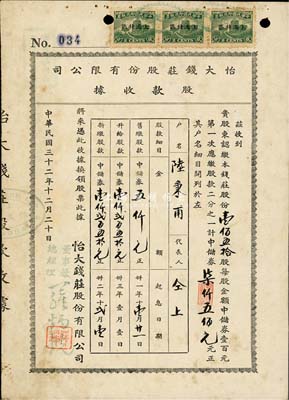 No. 034
司公限有份股莊錢大怡
據收款股
茲收到
貴股東認繳本錢莊股份壹佰五拾股每股金額中儲券壹百元
第一次應繳股款二分之一計中儲券柒仟五佰元元正
其戶名細目開列於左
戶名 陸東甫 代表人 仝上
股款細目 金額 起息日期
舊繳股款 中儲券五仟元正
升給股款 中儲券壹仟弍百五拾元正 卅三年壹月壹日
新繳股款 中儲券壹仟弍百五拾元正
將來憑此收據換領股票此據
怡大錢莊股份有限公司
董事長
總經理
中華民國三十二年十二月二十日
怡大錢莊股款收據